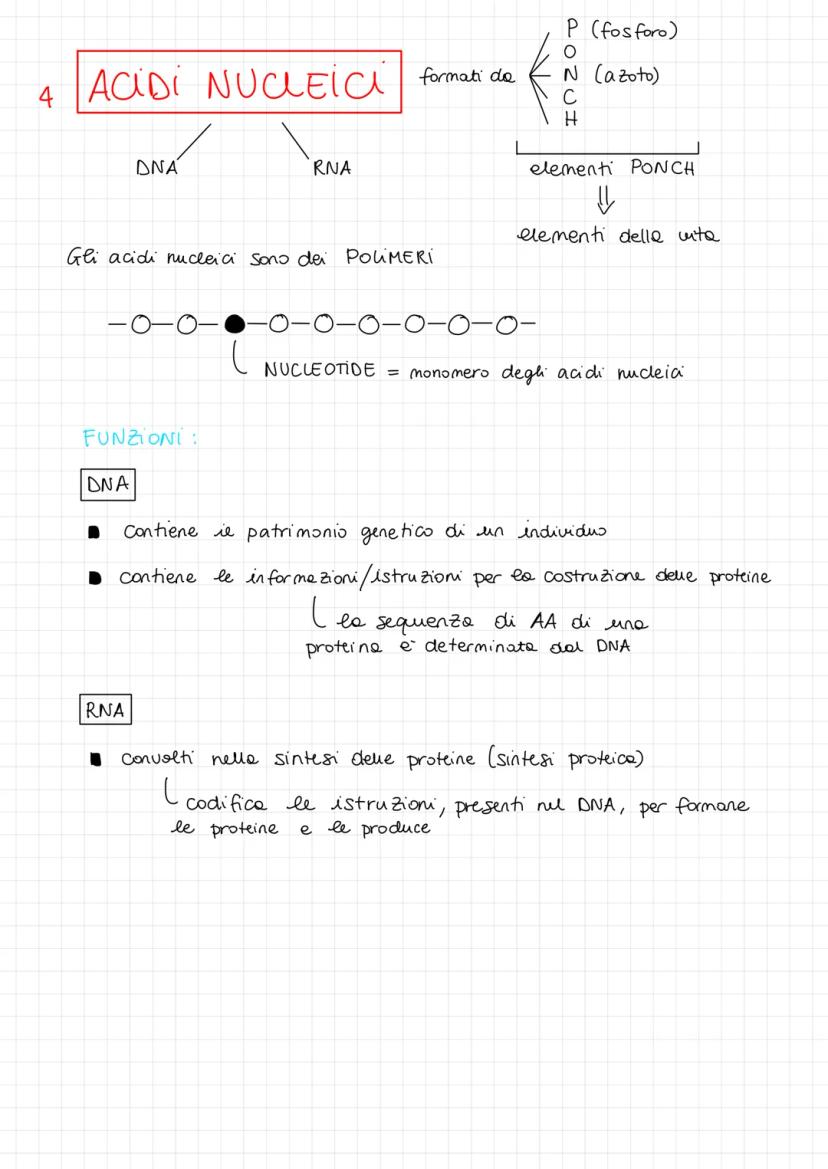 4 ACIDI NUCLEICI formati da
P (fosforo)
O
N (azoto)
C
H
DNA RNA
elementi PONCH
elementi della vita
Gli acidi nucleici sono dei POLIMERI
NUCLEOTIDE = monomero degli acidi nucleici
FUNZIONI:
DNA
contiene il patrimonio genetico di un individuo
contiene le informazioni/istruzioni per la costruzione delle proteine
la sequenza di AA di una
proteina è determinata dal DNA
RNA
convolti nella sintesi delle proteine (sintesi proteica)
codifica le istruzioni, presenti nel DNA, per formare
le proteine e le produce